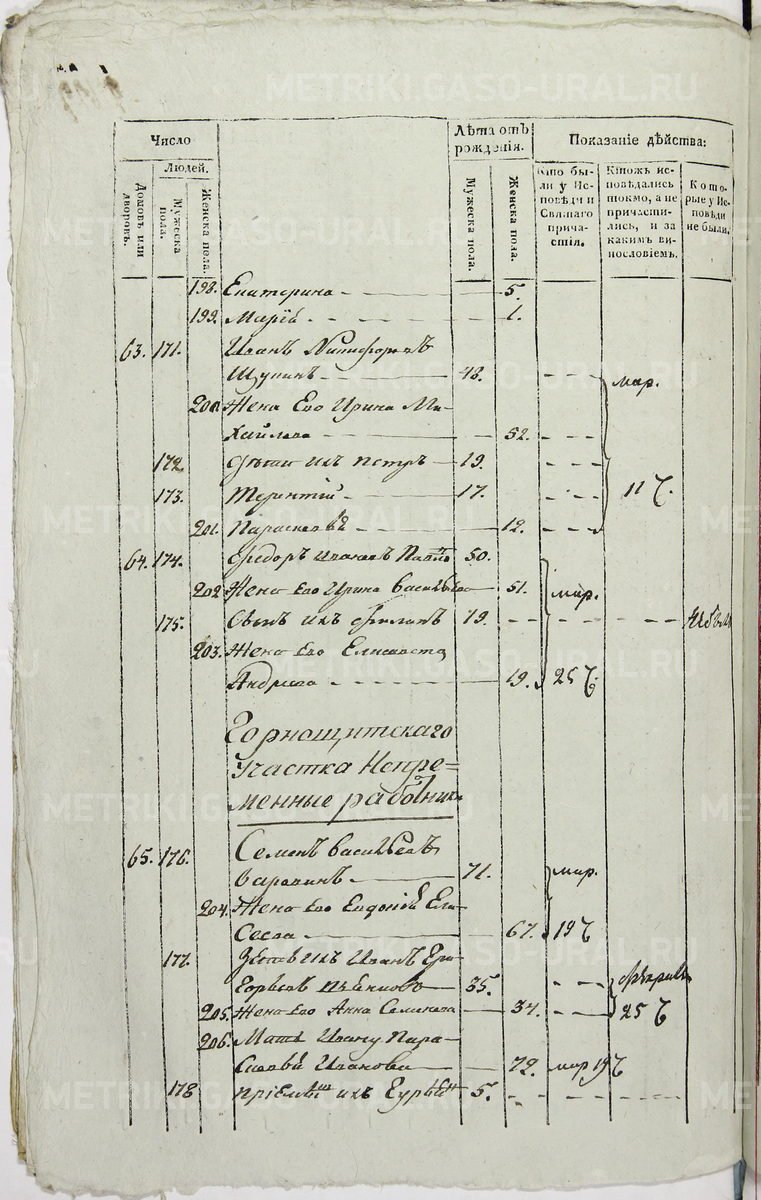 Число
Лѣта отъ рожденія.
Показаніе дѣйства:
Людей.
Домовъ или дворовъ.
Мужеска пола.
Женска пола.
Мужеска пола.
Женска пола.
Кто были у Исповѣди и Святаго причастія.
Ктожъ исповѣдались токмо, а не причастились, и за какимъ винословіемъ.
Которые у Исповѣди не были.
198. Екатерина 5.
199. Марiя 1.
63. 171. Иванъ Никифоровъ
Щукинъ 48. мар.
200 Жена Его Ирина Ми-
хайлова 52.
172 Дѣти ихъ Петръ 19.
173. Терентiй 17. 11 Ч.
201. Параскева 12.
64. 174. Федоръ Ивановъ 50.
202 Жена Его Ирина Васильева 51. мар.
175. Сынъ ихъ Филипъ 19.
203. Жена Его Елисавета
Андреева 19. 25 Ч.
Горнощитскаго
Участка Непре-
менные работники
65. 176. Семенъ Васильевъ
71. мар.
204. Жена Его Евдокiя Ели-
сеева 67. 19 Ч
177. Зять ихъ Иванъ Гри-
горьевъ 35.
205. Жена Его Анна Семенова 34. 25 Ч
206. Мать Ивану Пара-
скевiя Иванова 72. мар 19 Ч
178 прiемышъ ихъ 5.
METRIKI.GASO-URAL.RU